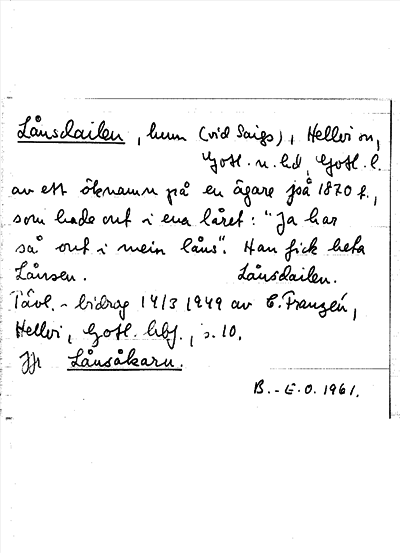 Lånsdailen, hum (vid Saigs), Hellvi sn,
Gotl. n. hd, Gotl. l.
av ett öknamn på en ägare på 1870 t.,
som hade ont i ena låret: "Ja har
så ont i mein låns". Han fick heta
Lånsen. Lånsdailen.
Tävl. - bidrag 14/3 1949 av E. Franzén,
Hellvi, Gotl. hbf., s. 10.
Jfr Lånsåkarn.
B. - E. O. 1961.